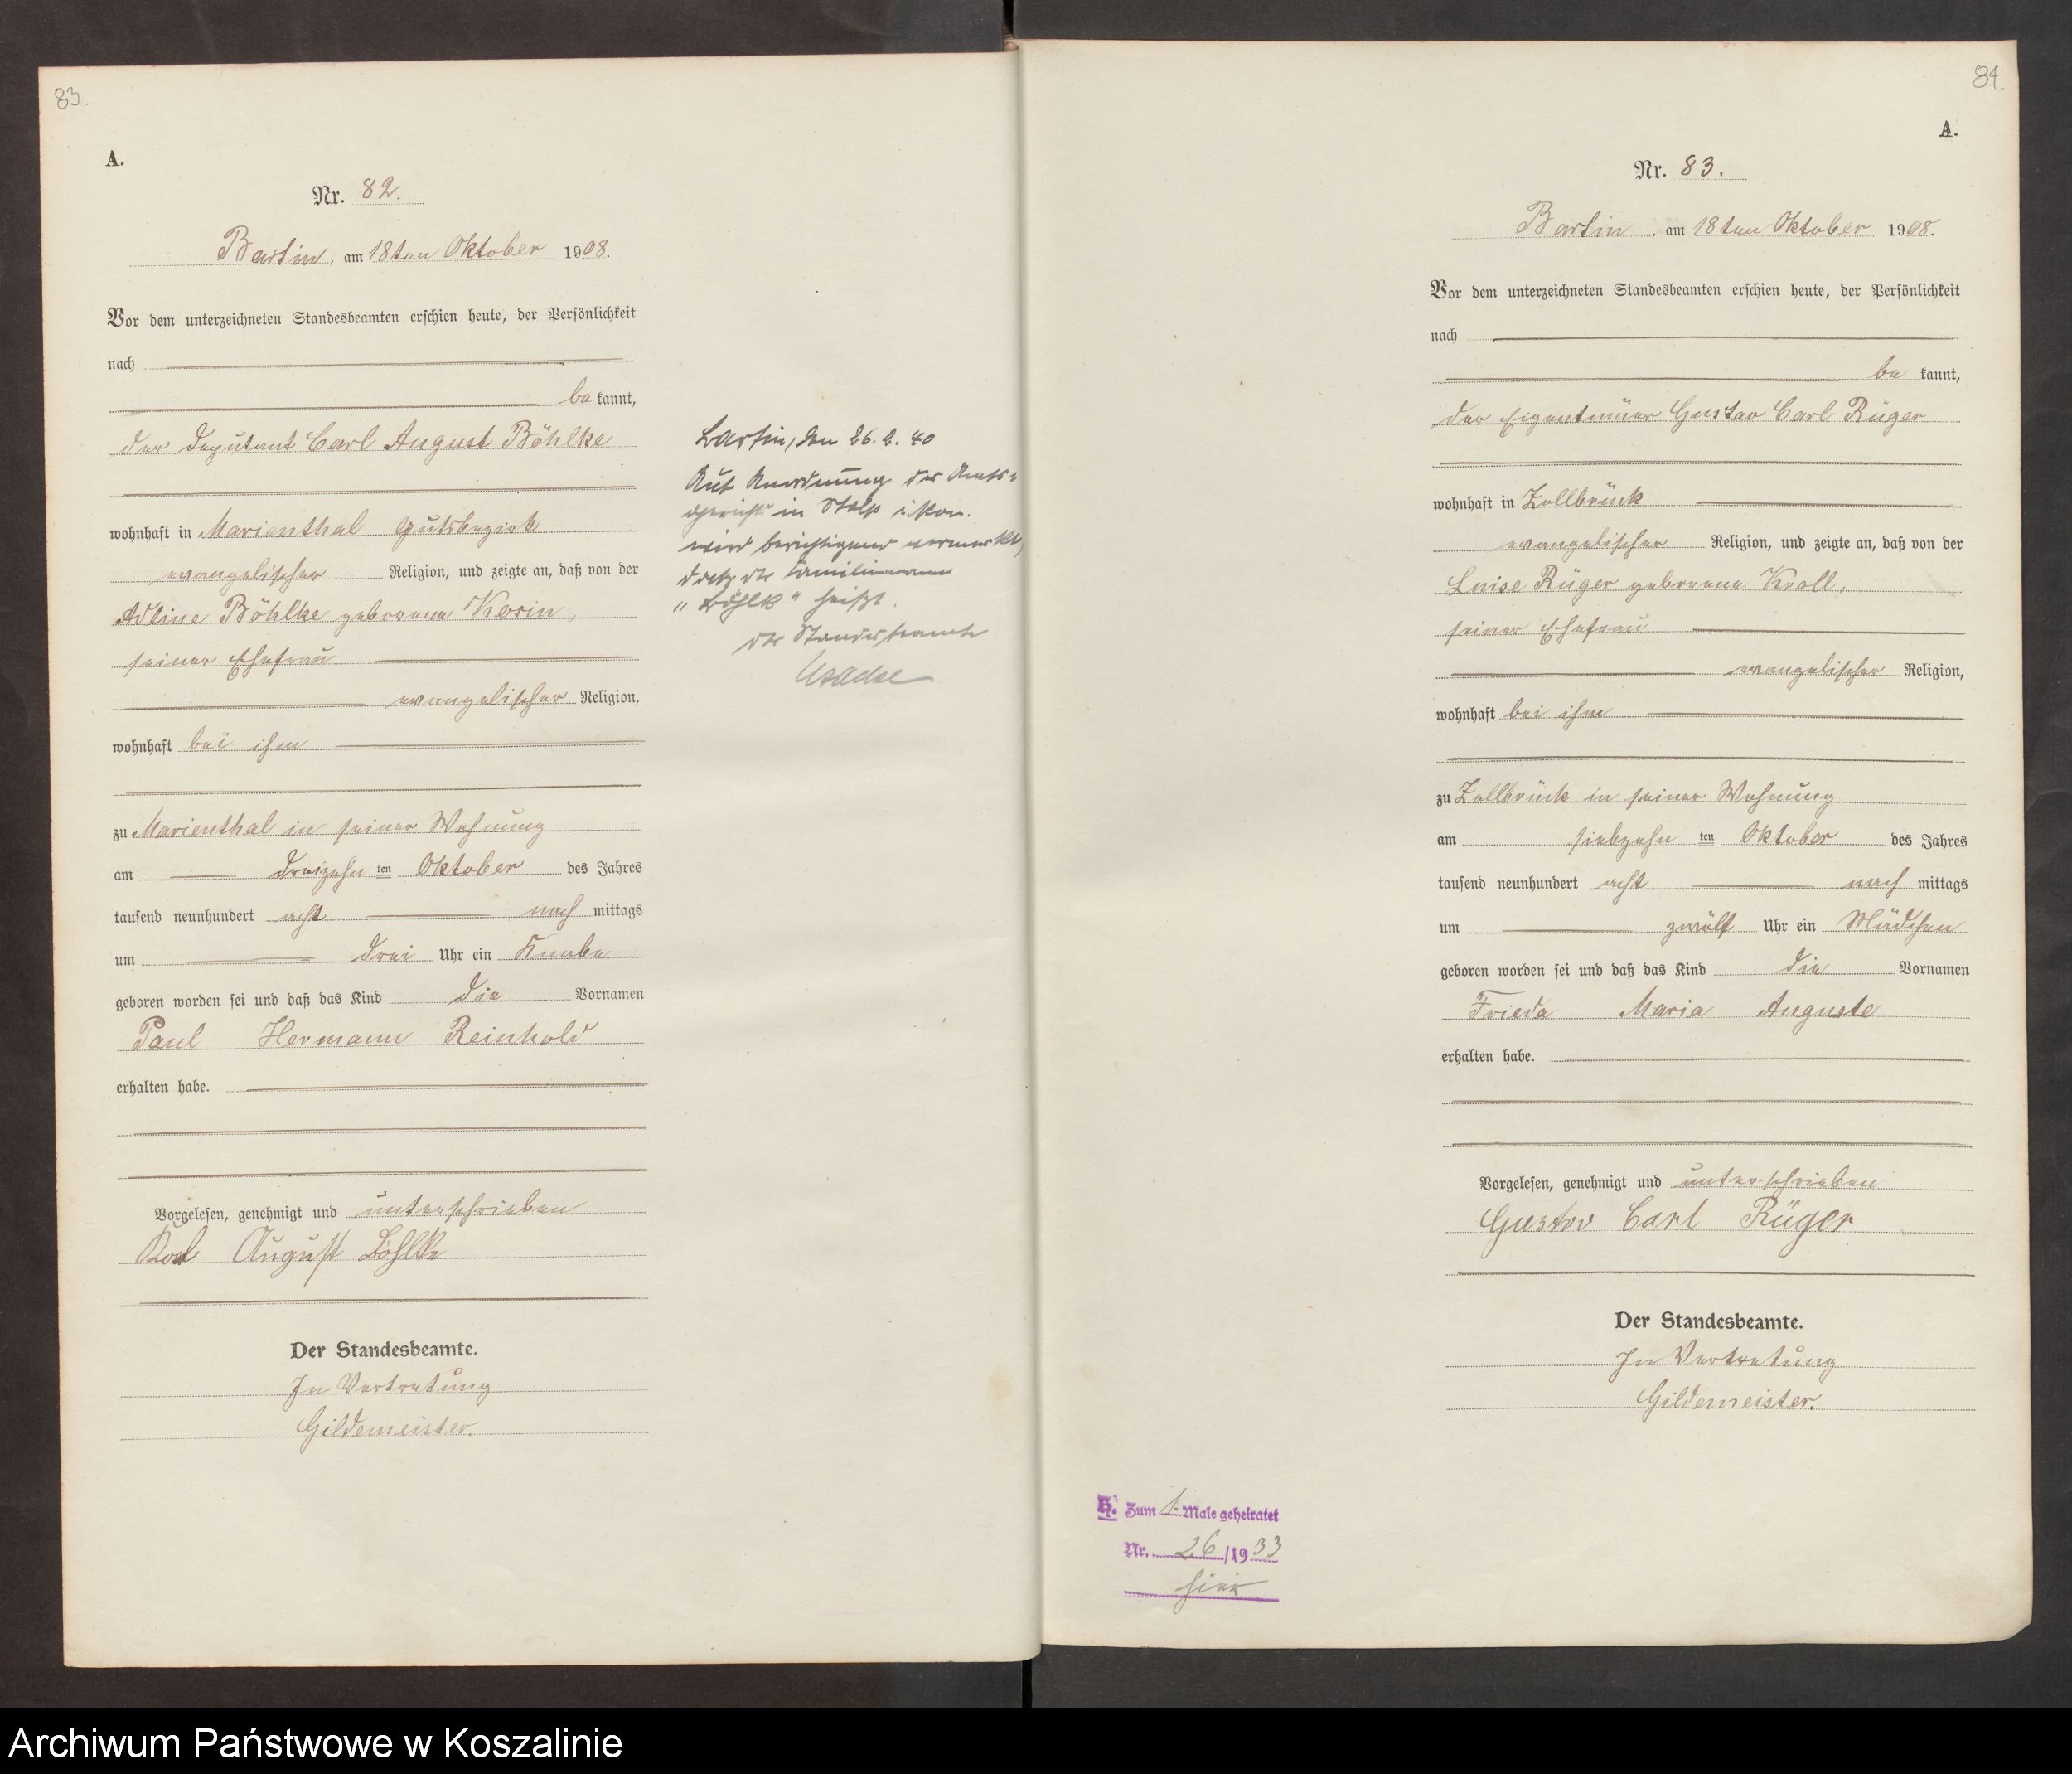 83.
A.
Nr. 82.
Bartin, am 18ten Oktober 1908.
Vor dem unterzeichneten Standesbeamten erschien heute, der Persönlichkeit
nach
be kannt,
der Deputant Carl August Böhlke
wohnhaft in Marienthal Gutsbezirk
evangelischer Religion, und zeigte an, daß von der
Adline Böhlke geborene Kosin,
seiner Ehefrau
evangelischer Religion,
wohnhaft bei ihm
zu Marienthal in seiner Wohnung
am dreizehn ten Oktober des Jahres
tausend neunhundert acht nach mittags
um drei Uhr ein Knabe
geboren worden sei und daß das Kind die Vornamen
Paul Hermann Reinhold
erhalten habe.
Vorgelesen, genehmigt und unterschrieben
Karl August Böhlke
Der Standesbeamte.
In Vertretung
Gildemeister.
Bartin, den 26. 2. 40
Auf Anordnung des Amts-
gerichts in Stolp i. Pom.
wird berichtigend vermerkt,
daß der Familienname
"Böhlk" heißt.
Der Standesbeamte
84.
A.
Nr. 83.
Bartin, am 18ten Oktober 1908.
Vor dem unterzeichneten Standesbeamten erschien heute, der Persönlichkeit
nach
be kannt,
der Eigentümer Gustav Carl Rüger
wohnhaft in Zollbrück
evangelischer Religion, und zeigte an, daß von der
Luise Rüger geborene Kroll,
seiner Ehefrau
evangelischer Religion,
wohnhaft bei ihm
zu Zollbrück in seiner Wohnung
am siebzehn ten Oktober des Jahres
tausend neunhundert acht nach mittags
um zwölf Uhr ein Mädchen
geboren worden sei und daß das Kind die Vornamen
Frieda Maria Auguste
erhalten habe.
Vorgelesen, genehmigt und unterschrieben
Gustav Carl Rüger
Der Standesbeamte.
In Vertretung
Gildemeister.
H. Zum 1. Male geheiratet
Nr. 26/1933
hier
Archiwum Państwowe w Koszalinie